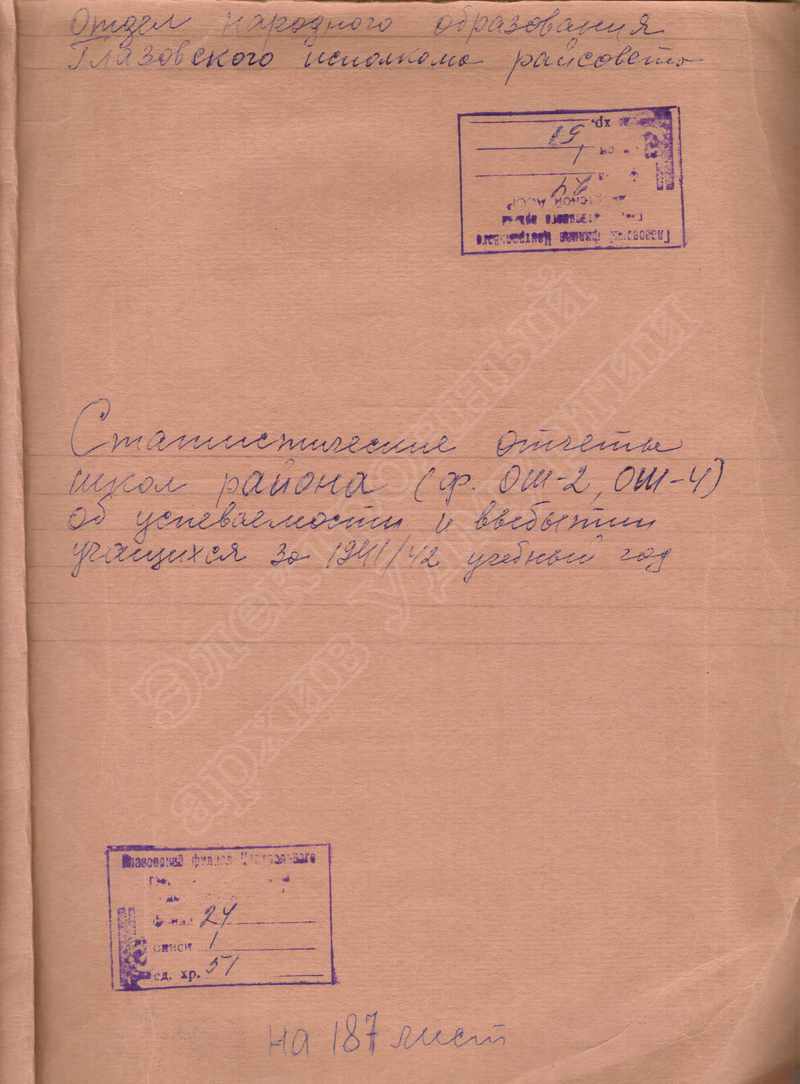 Отдел народного образования
Глазовского исполкома райсовета
Глазовский филиал Центрального
хр.
Статистические отчеты
школ района (ф. ОШ-2, ОШ-4)
об успеваемости и выбытии
учащихся за 1941/42 учебный год
Электронный
архив Удмуртии
Глазовский филиал Центрального
фонд 24
описи 1
ед. хр. 51
на 187 лист